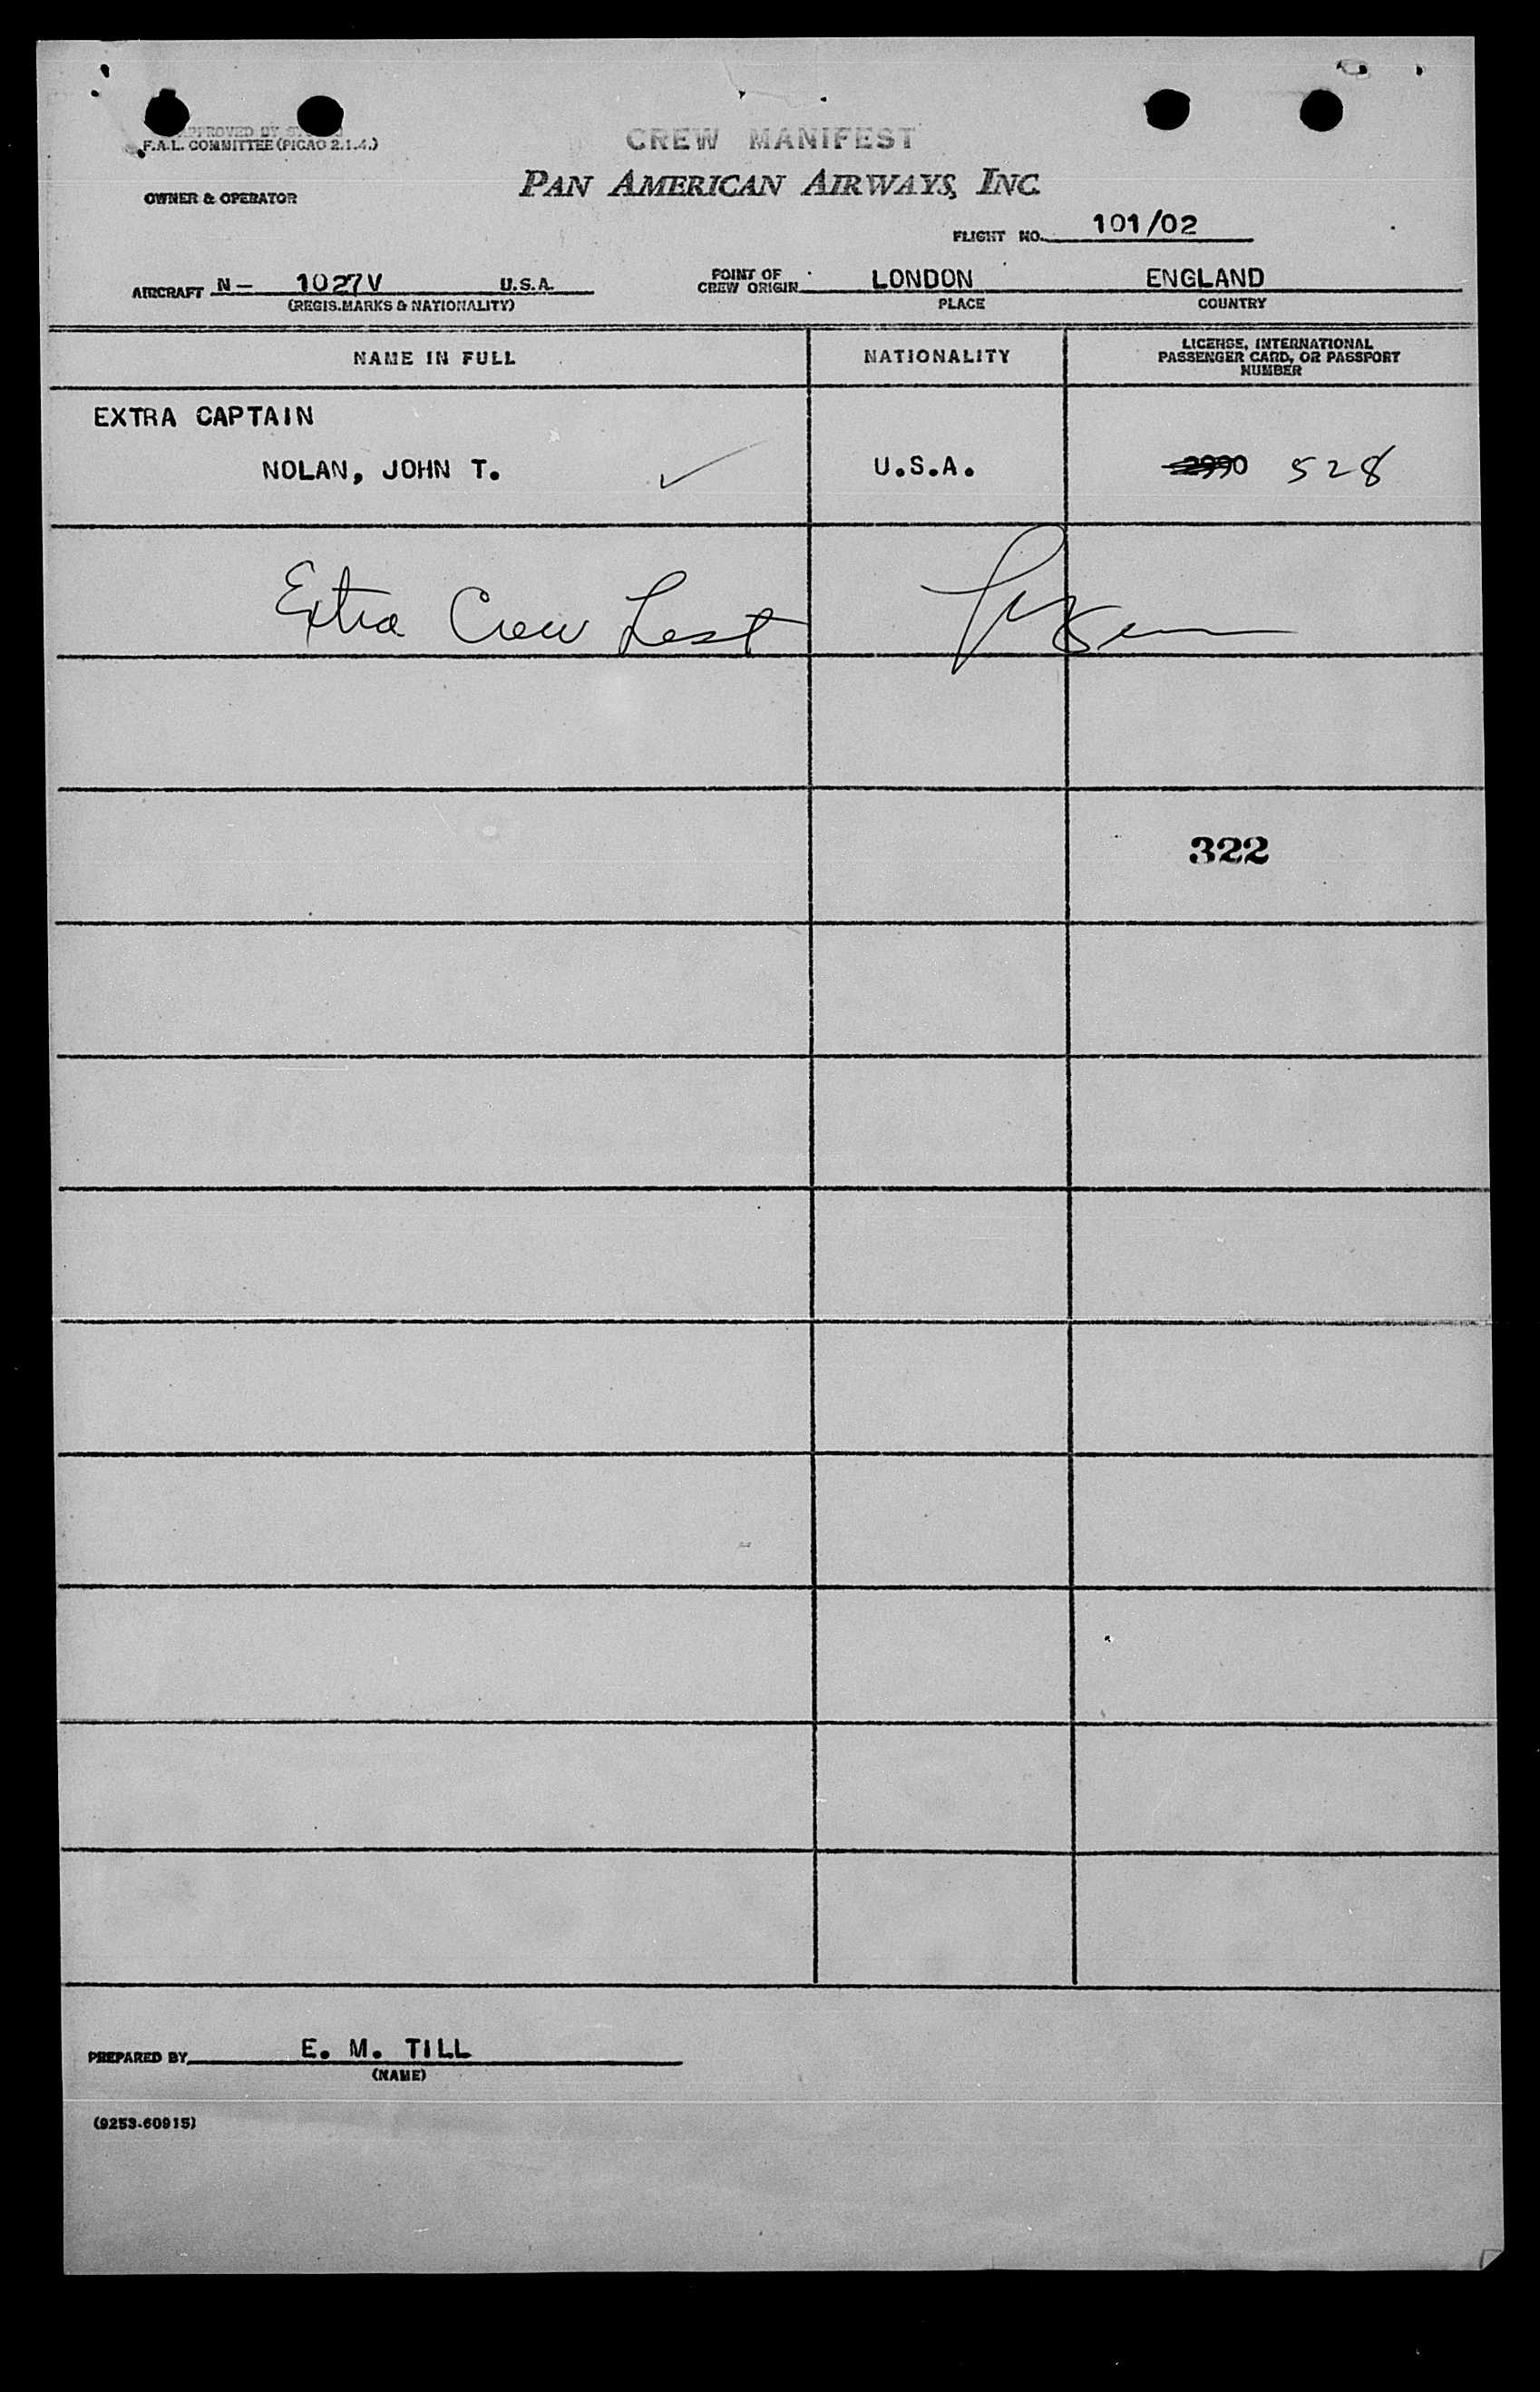 APPROVED BY
F.A.L. COMMITTEE (PICAO 2.1.4.)
CREW MANIFEST
PAN AMERICAN AIRWAYS, INC.
OWNER & OPERATOR
FLIGHT NO. 101/02
AIRCRAFT N- 1027V U.S.A.
(REGIS. MARKS & NATIONALITY)
POINT OF
CREW ORIGIN LONDON ENGLAND
PLACE COUNTRY
NAME IN FULL
NATIONALITY
LICENSE, INTERNATIONAL
PASSENGER CARD, OR PASSPORT
NUMBER
EXTRA CAPTAIN
NOLAN, JOHN T. ✓ U.S.A. 2990 528
Extra Crew List
322
PREPARED BY E. M. TILL
(NAME)
(9253-60915)